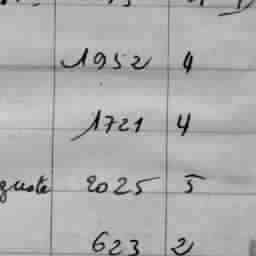 1952 4
1721 4
2025 5
623 2